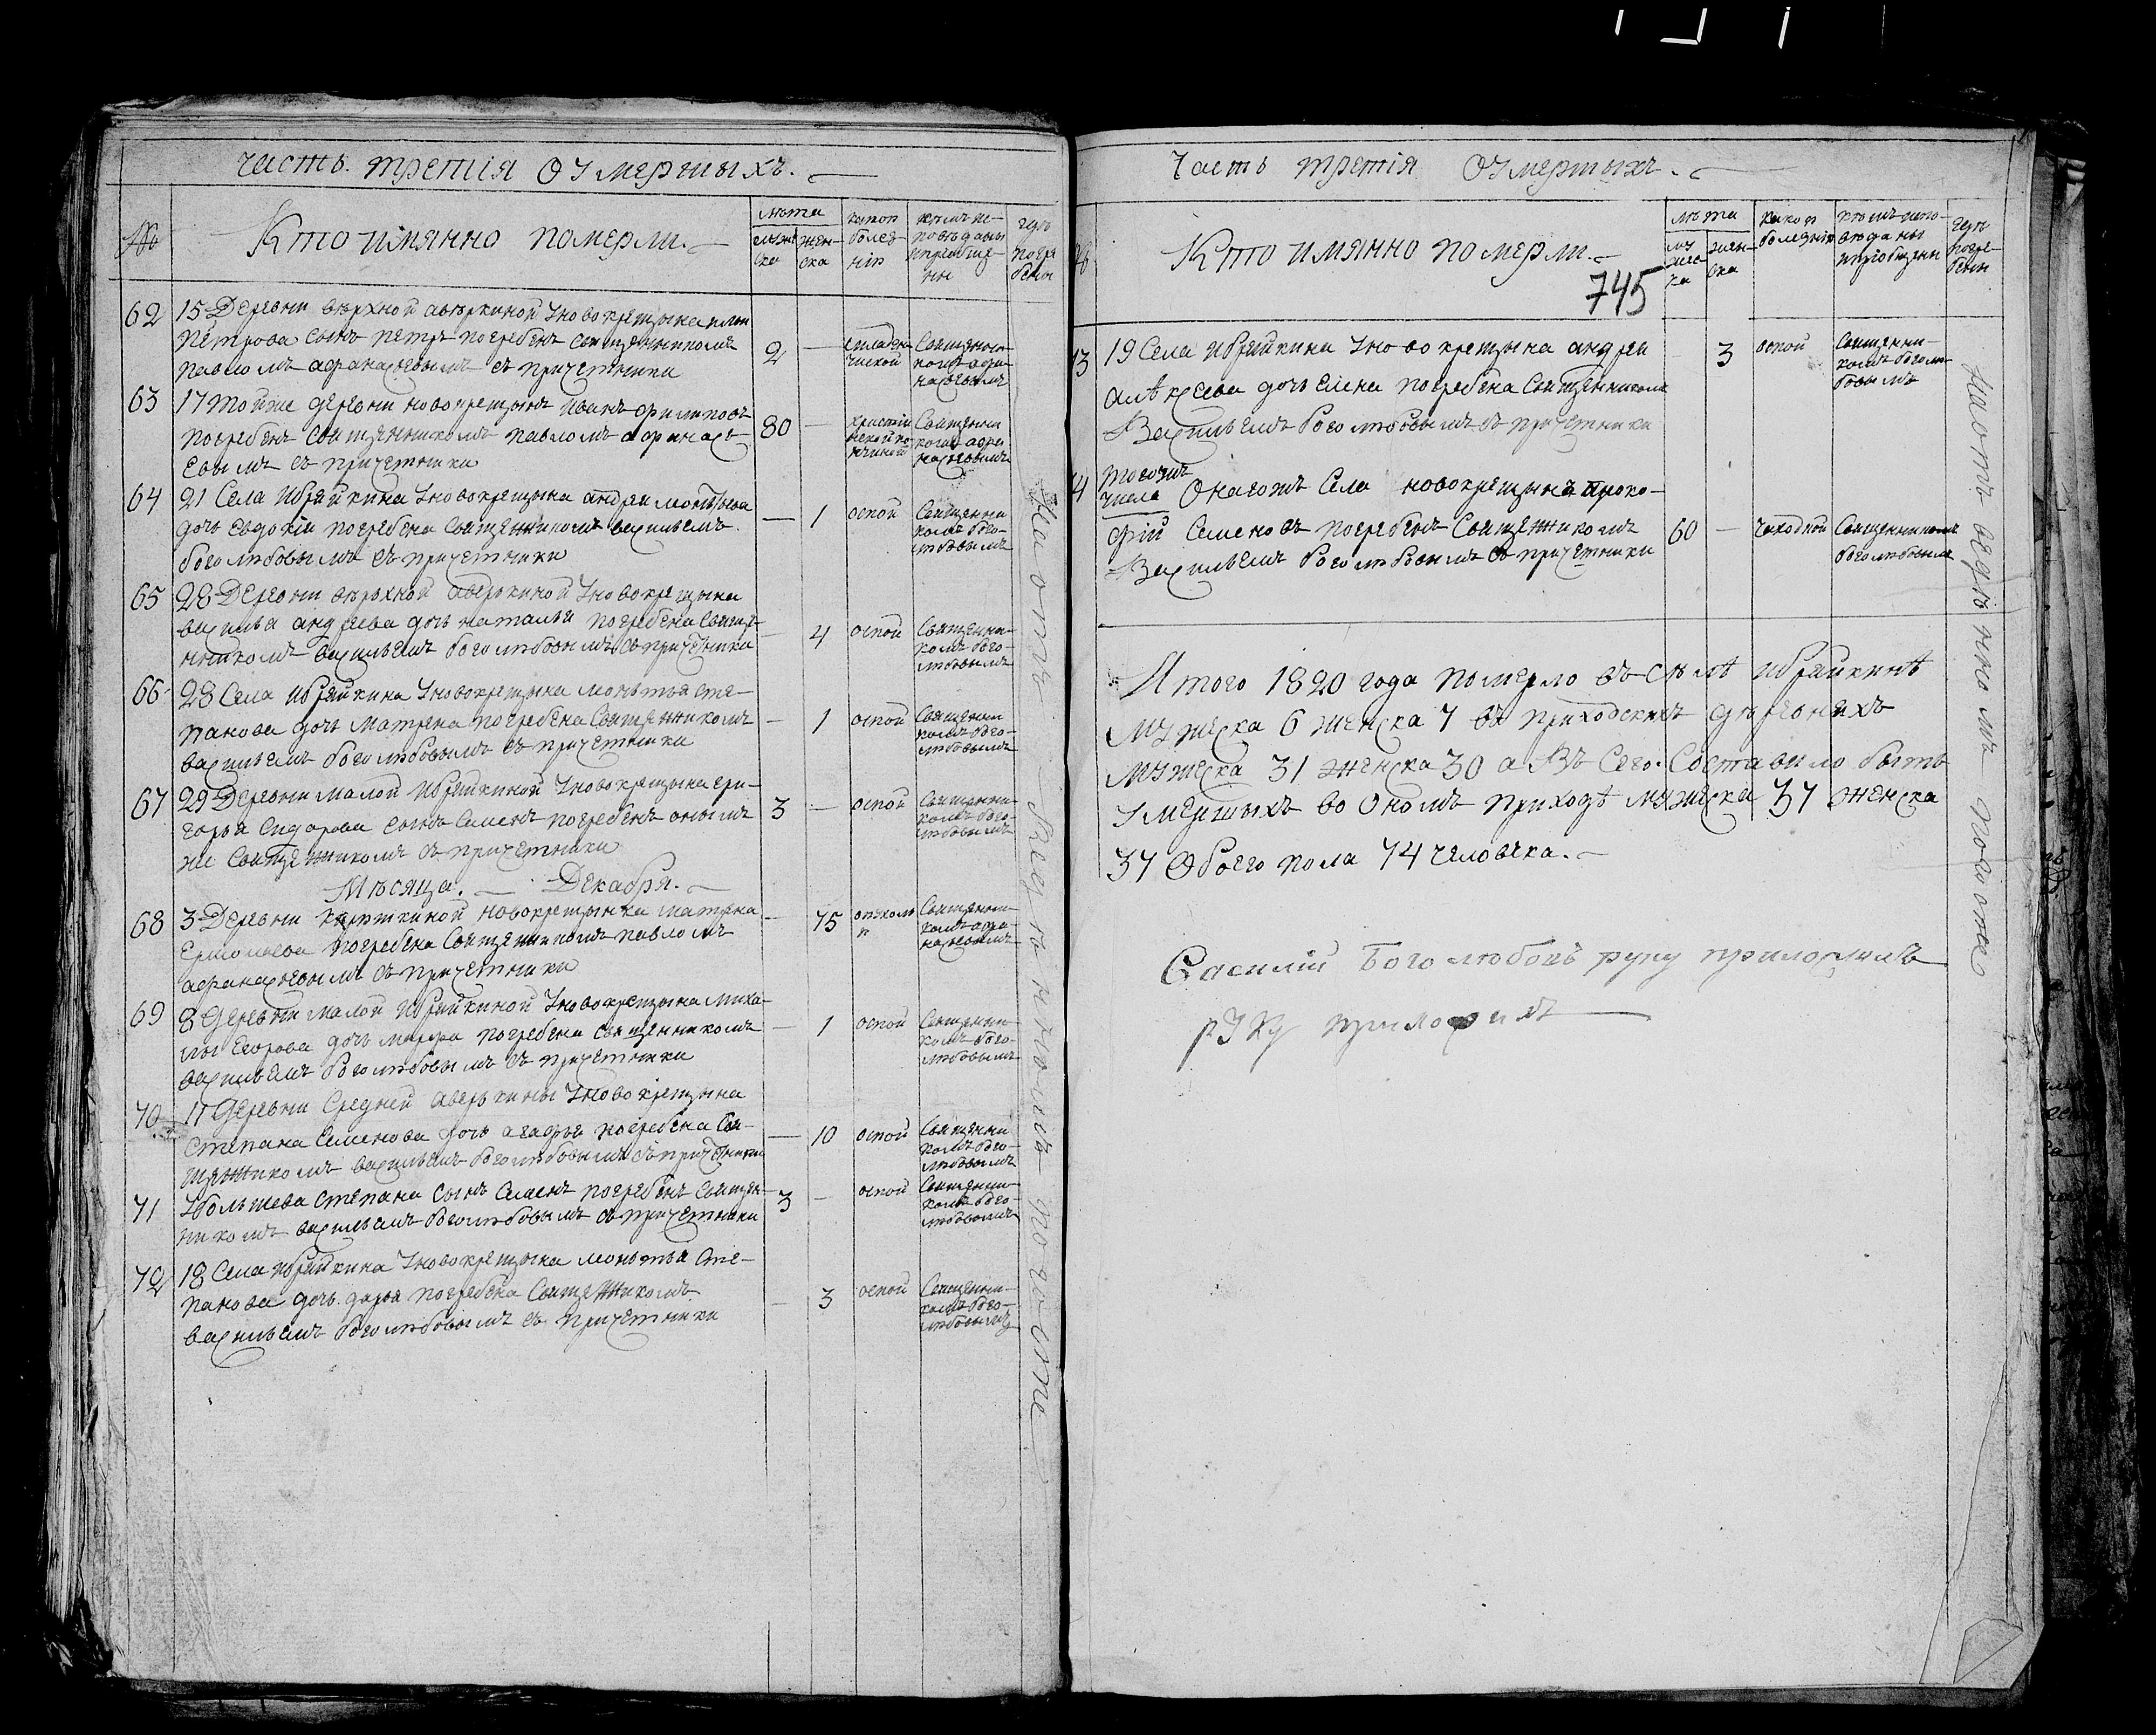 Часть третія Оумершыхъ.
№
Кто имянно померли.
лѣта
мужска
женска
какою болезнію
кѣмъ исповѣданы и пріобщены
гдѣ погребены
62
15 Деревни вѣрхной авѣркиной Уновокрещына
Петрова сынъ петръ погребенъ Священникомъ
павломъ афанасьевымъ съ причетники
2
—
младенческой
Священникомъ афанасьевымъ
63
17 Той же деревни новокрещынъ иванъ филиповъ
погребенъ Священникомъ павломъ афанась-
евымъ съ причетники
80
—
Священникомъ афанасьевымъ
64
21 Села Ибряйкина Уновокрещына андреи
дочь евдокіи погребена Священникомъ васильемъ
боголюбовымъ съ причетники
—
1
оспой
Священникомъ боголюбовымъ
65
28 Деревни вѣрьхной аверькиной Уновокрещына
василья андреева дочь наталья погребена Свяще-
нникомъ васильемъ боголюбовымъ съ причетники
—
4
оспой
Священникомъ боголюбовымъ
66
28 Села Ибряйкина Уновокрещына монътья сте-
панова дочь матрена погребена Священникомъ
васильемъ боголюбовымъ съ причетники
—
1
оспой
Священникомъ боголюбовымъ
67
29 Деревни малой Ибряйкиной Уновокрещына гри-
горья Сидорова сынъ Семенъ погребенъ онымъ
же Священникомъ съ причетники
3
—
оспой
Священникомъ боголюбовымъ
Мѣсяца. Декабря.
68
3 Деревни новокрещынка матрена
Ермолаева погребена Священникомъ павломъ
афанасьевымъ съ причетники
—
75
Священникомъ афанасьевымъ
69
8 Деревни малой Ибряйкиной Уновокрещына миха-
илы Егорова дочь марфа погребена Священникомъ
васильемъ боголюбовымъ съ причетники
—
1
оспой
Священникомъ боголюбовымъ
70
11 Деревни Средней аверькины Уновокрещына
Степана Семенова дочь агафья погребена Свя-
щенникомъ васильемъ боголюбовымъ съ причетники
—
10
оспой
Священникомъ боголюбовымъ
71
Степана сынъ Семенъ погребенъ Священ-
никомъ васильемъ боголюбовымъ съ причетники
3
—
оспой
Священникомъ боголюбовымъ
72
18 Села Ибряйкина Уновокрещына монътья Сте-
панова дочь дарья погребена Священникомъ
васильемъ боголюбовымъ съ причетники
—
3
оспой
Священникомъ боголюбовымъ
На отведенномъ погосте
Часть третія Оумершыхъ.
Кто имянно померли.
745
лѣта
мужеска
женска
какою болезнію
кѣмъ исповѣданы и пріобщены
гдѣ погребены
3
19 Села Ибряйкина Уновокрещына андрея
алѣксеева дочь Елена погребена Священникомъ
Васильемъ боголюбовымъ съ причетники
3
оспой
Священникомъ боголюбовымъ
4
Тогожъ числа Онагожъ Села новокрещынъ проко-
фій Семеновъ погребенъ Священникомъ
Васильемъ боголюбовымъ съ причетники
60
—
чахоткой
Священникомъ боголюбовымъ
На отведенномъ погосте
Итого 1820 года померло въ селѣ Ибряйкинѣ
мужеска 6 женска 7 въ приходскихъ деревняхъ
мужеска 31 женска 30 а Въ Сего. Составило быть
Умершыхъ во Ономъ приходѣ мужеска 37 женска
37 Обоего пола 74 человѣка.
Василій Боголюбовъ руку приложилъ
руку приложилъ